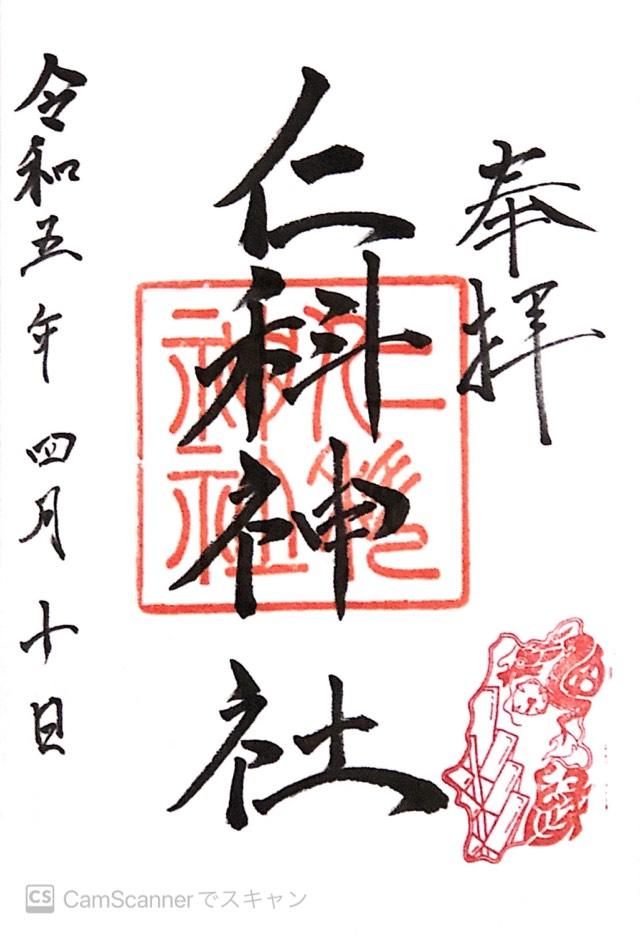 奉拝
仁科神社
令和五年四月十日
仁科神社
CS CamScannerでスキャン